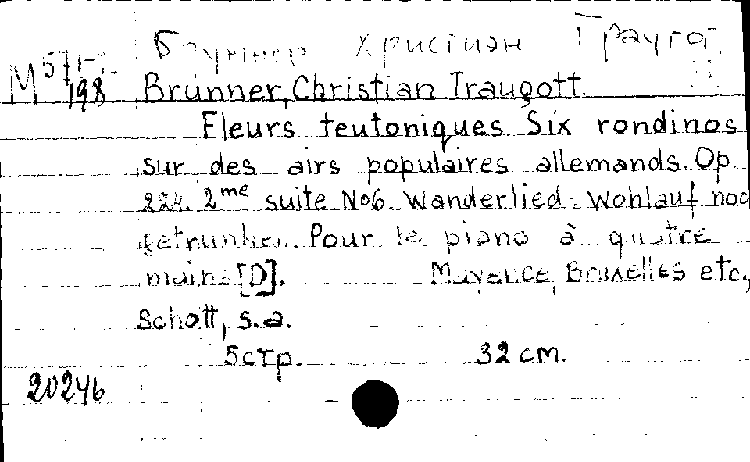 Бруннер Христиан Трауготт
М 57
198
Brunner, Christian Traugott
Fleurs teutoniques Six rondinos
sur des airs populaires allemands. Op
224. 2me suite No6. Wanderlied: Wohlauf noc
getrunken. Pour le piano à quatre
mains [D]. Mayence, Bruxelles etc.,
Schott, s.a.
5 стр. 32 cm.
20246